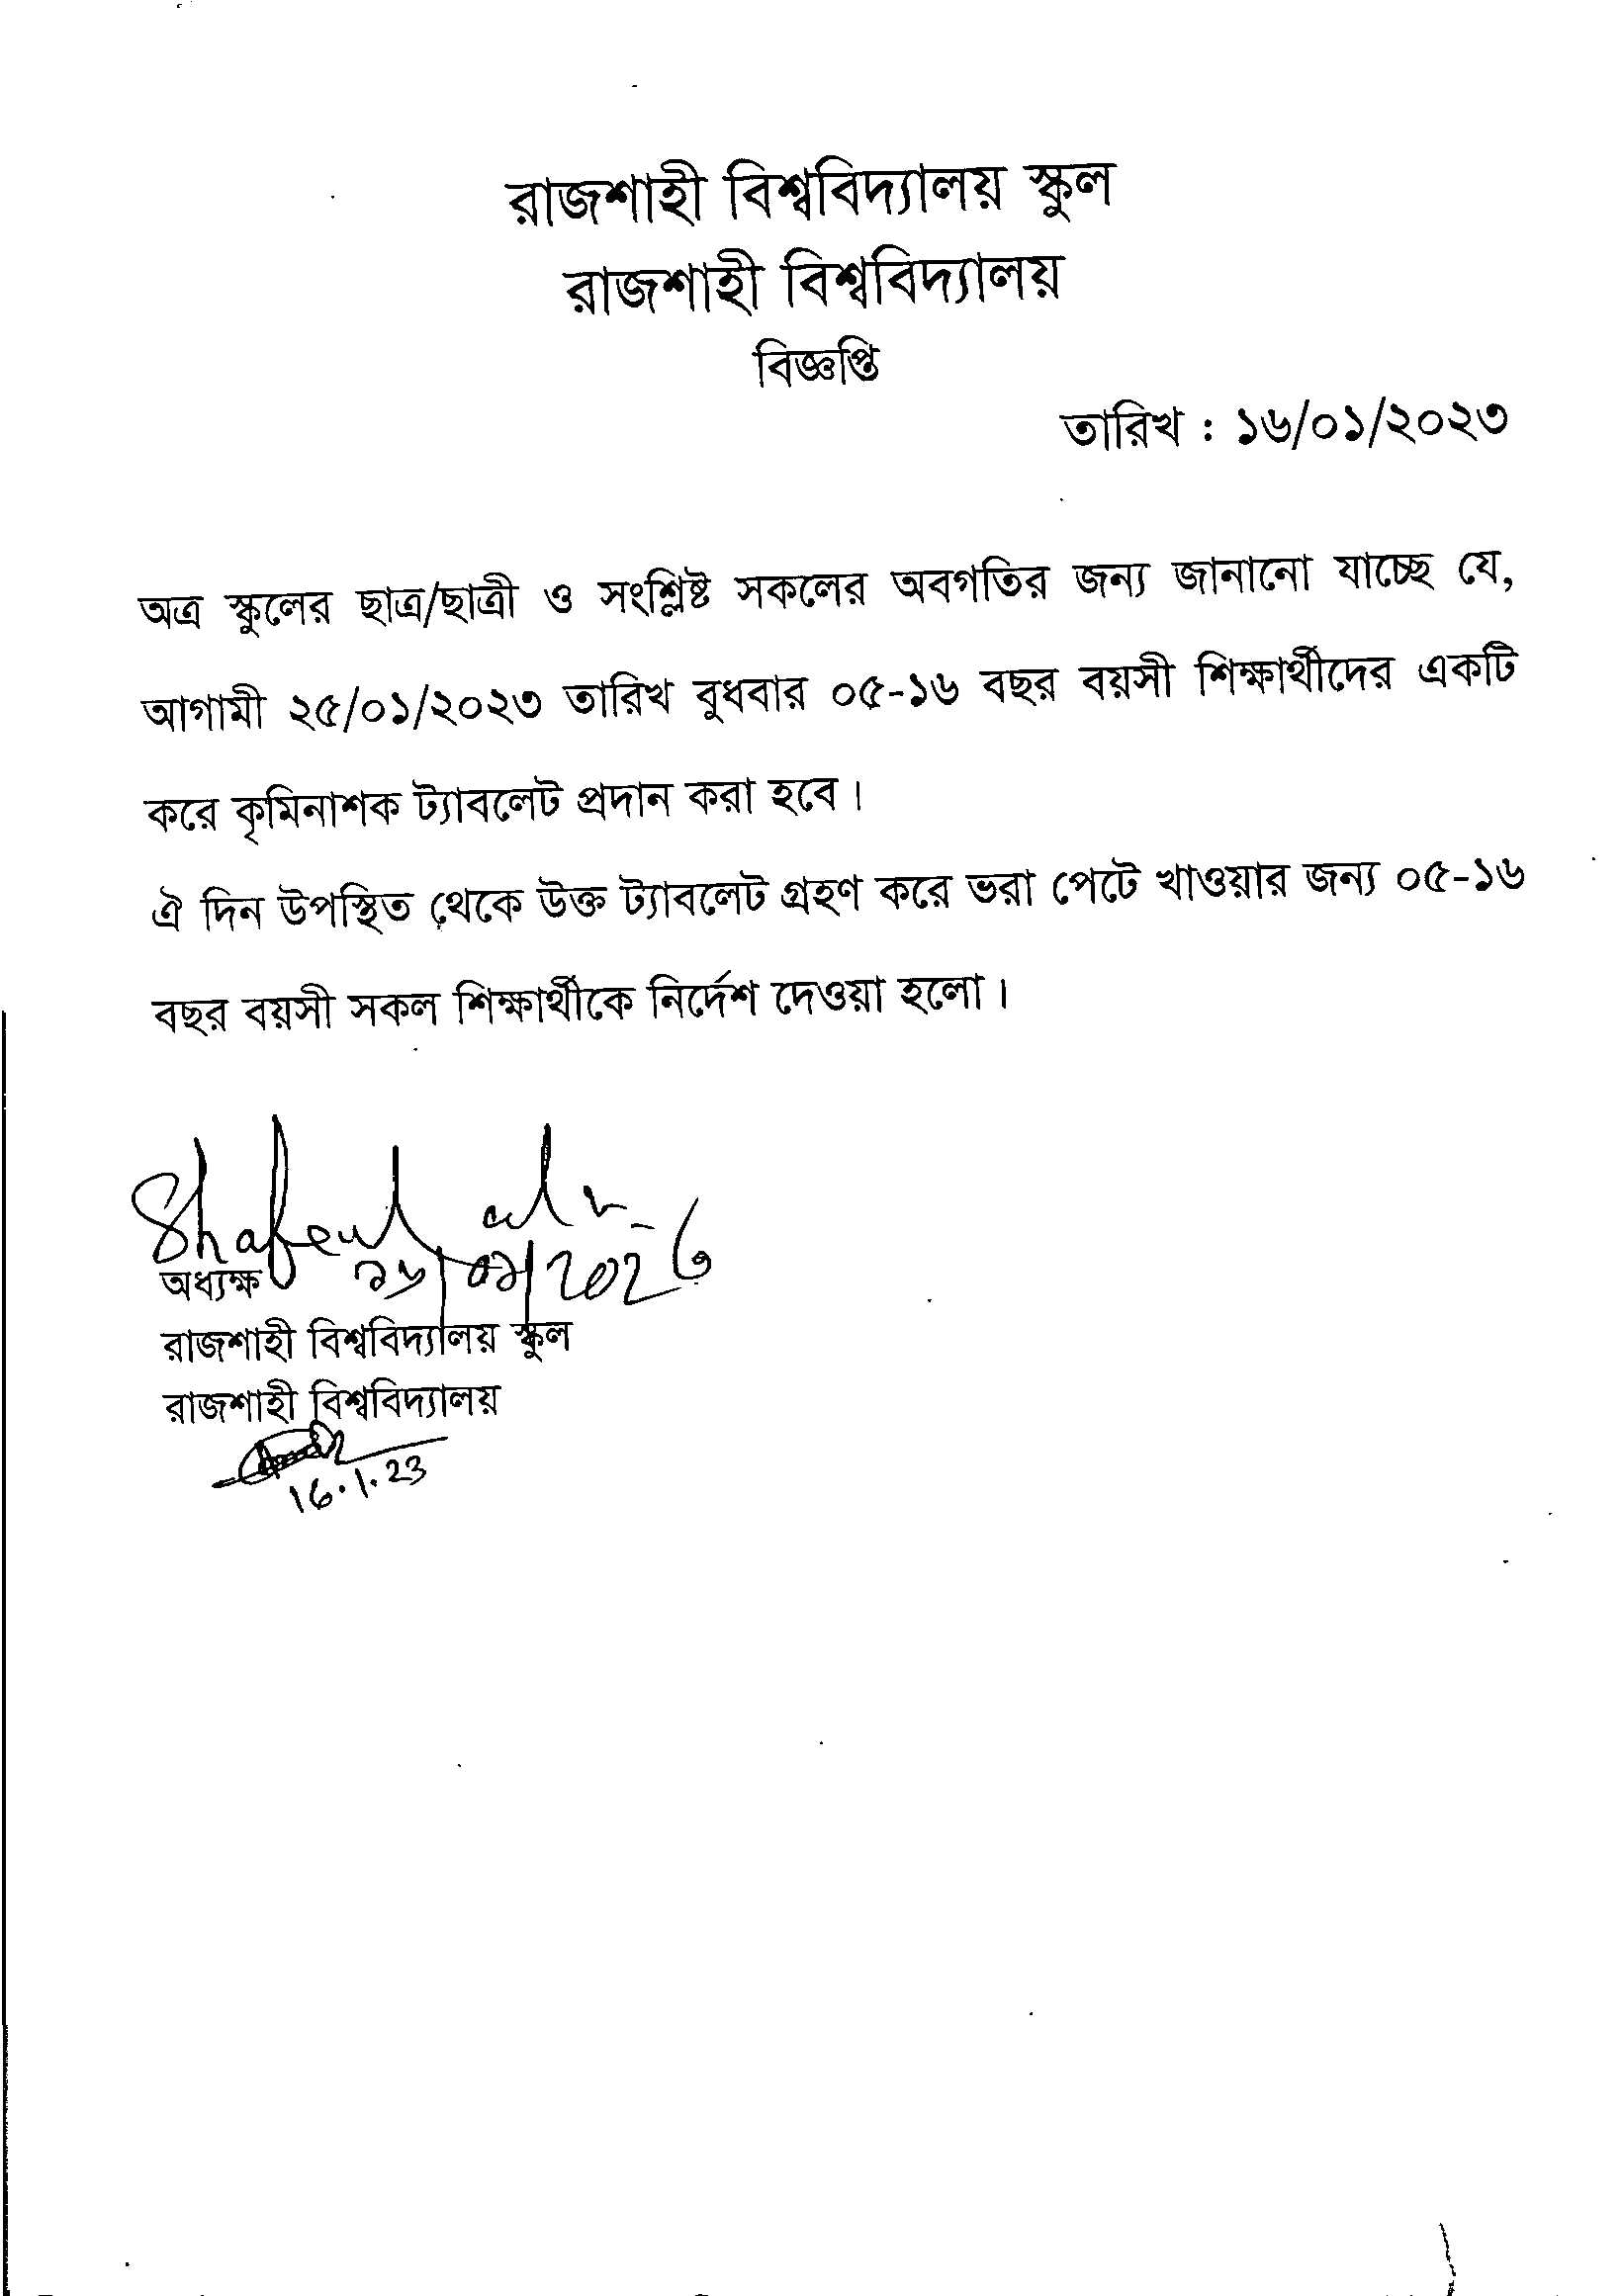 রাজশাহী বিশ্ববিদ্যালয় স্কুল
রাজশাহী বিশ্ববিদ্যালয়
বিজ্ঞপ্তি
তারিখ : ১৬/০১/২০২৩
অত্র স্কুলের ছাত্র/ছাত্রী ও সংশ্লিষ্ট সকলের অবগতির জন্য জানানো যাচ্ছে যে,
আগামী ২৫/০১/২০২৩ তারিখ বুধবার ০৫-১৬ বছর বয়সী শিক্ষার্থীদের একটি
করে কৃমিনাশক ট্যাবলেট প্রদান করা হবে।
ঐ দিন উপস্থিত থেকে উক্ত ট্যাবলেট গ্রহণ করে ভরা পেটে খাওয়ার জন্য ০৫-১৬
বছর বয়সী সকল শিক্ষার্থীকে নির্দেশ দেওয়া হলো।
Shafeul
১৬/০১/২০২৩
অধ্যক্ষ
রাজশাহী বিশ্ববিদ্যালয় স্কুল
রাজশাহী বিশ্ববিদ্যালয়
16.1.23